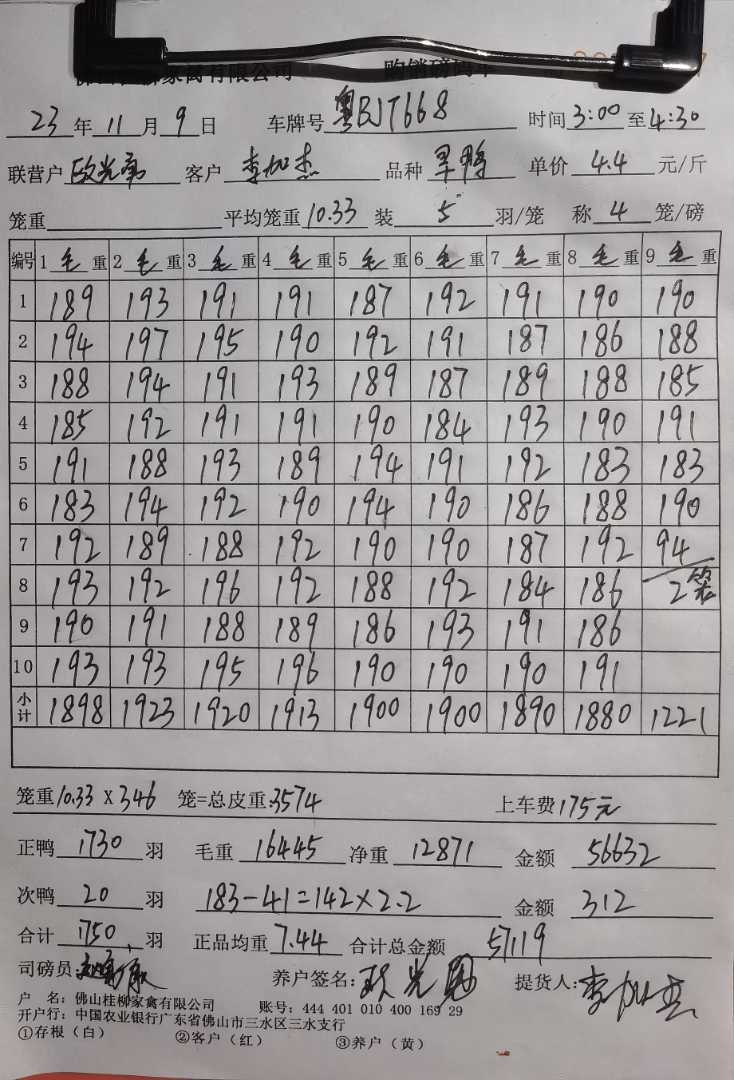 家禽有限公司
23年11月9日 车牌号粤BJT668 时间3:00至4:30
联营户欧光 客户李加杰 品种旱鸭 单价4.4元/斤
笼重 平均笼重10.33 装5羽/笼 称4笼/磅
编号 1毛重 2毛重 3毛重 4毛重 5毛重 6毛重 7毛重 8毛重 9毛重
1 189 193 191 191 187 192 191 190 190
2 194 197 195 190 192 191 187 186 188
3 188 194 191 193 189 187 189 188 185
4 185 192 191 191 190 184 193 190 191
5 191 188 193 189 194 191 192 183 183
6 183 194 192 190 194 190 186 188 190
7 192 189 188 192 190 190 187 192 94
8 193 192 196 192 188 192 184 186 2笼
9 190 191 188 189 186 193 191 186
10 193 193 195 196 190 190 190 191
小计 1898 1923 1920 1913 1900 1900 1890 1880 1221
笼重10.33×346笼=总皮重:3574 上车费175元
正鸭1730羽 毛重16445 净重12871 金额56632
次鸭20羽 183-41=142×2.2 金额312
合计1750羽 正品均重7.44 合计总金额57119
司磅员: 养户签名:欧光 提货人:李加杰
户 名:佛山桂柳家禽有限公司 账号:444 401 010 400 169 29
开户行:中国农业银行广东省佛山市三水区三水支行
①存根(白) ②客户(红) ③养户(黄)